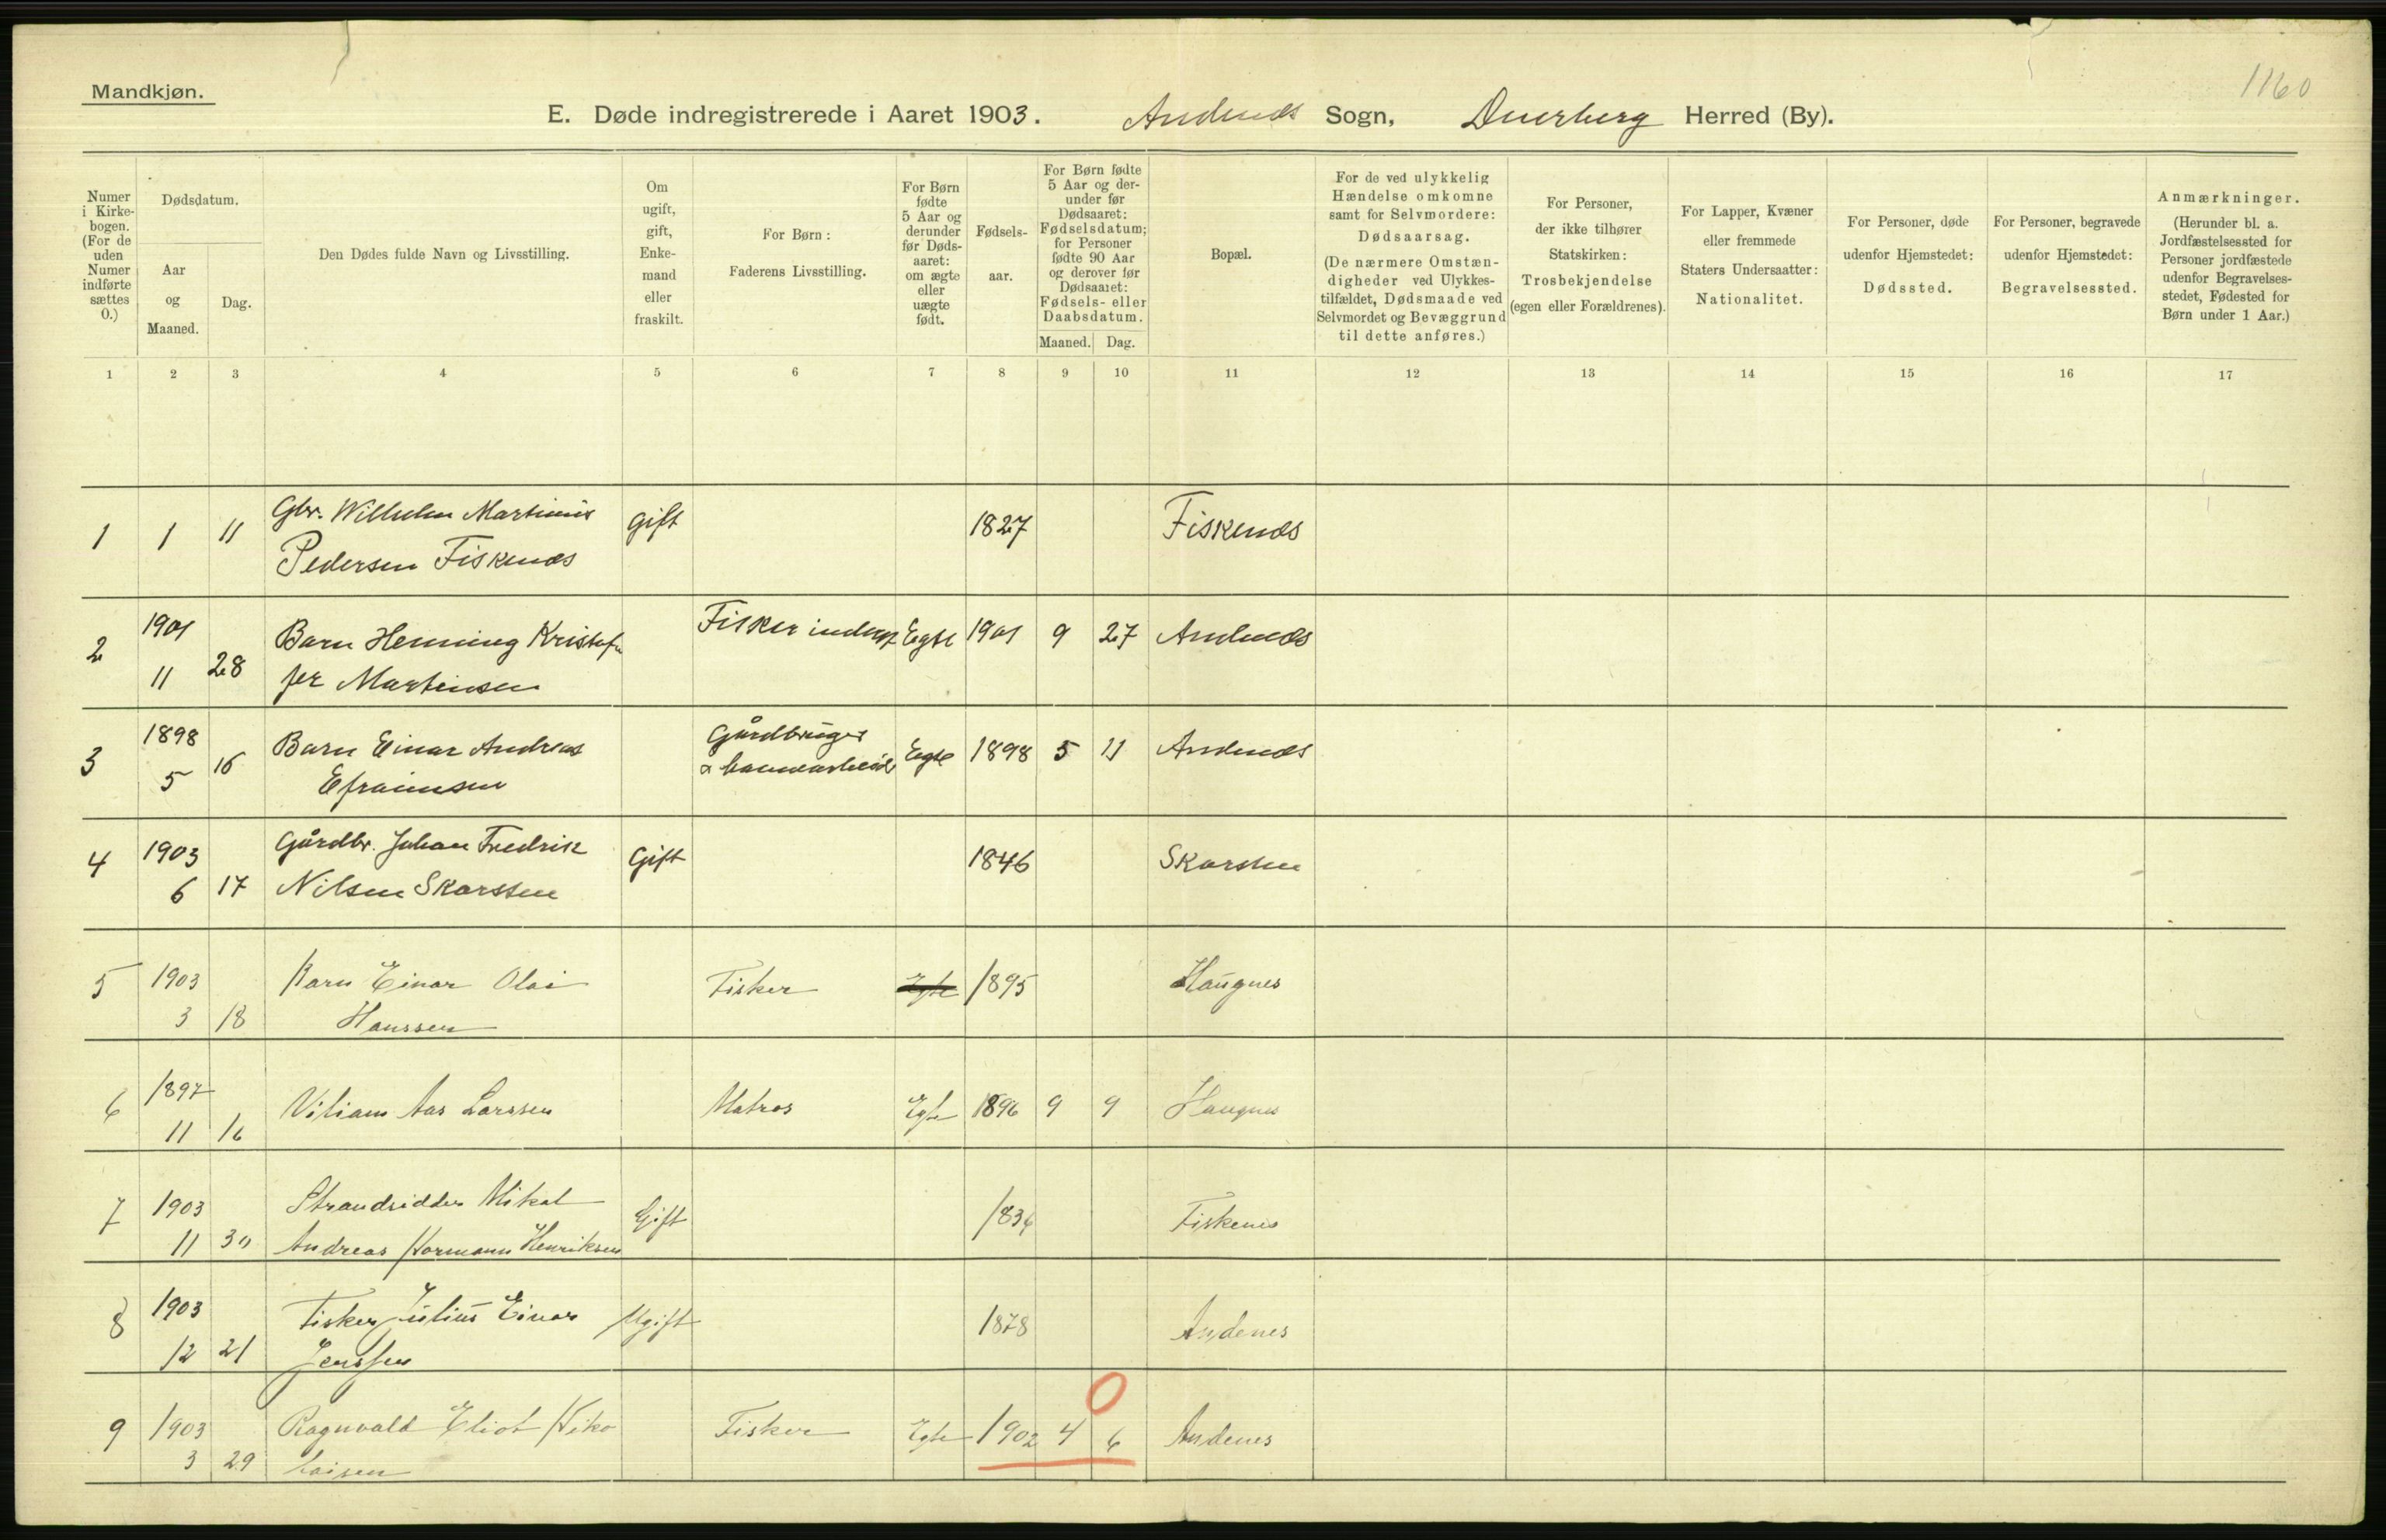 Mandkjøn.
1160
E. Døde indregistrerede i Aaret 1903. Andenæs Sogn, Dverberg Herred (By).
Numer i Kirkebogen. (For de uden Numer indførte sættes 0.)
Dødsdatum.
Aar og Maaned.
Dag.
Den Dødes fulde Navn og Livsstilling.
Om ugift, gift, Enkemand eller fraskilt.
For Børn: Faderens Livsstilling.
For Børn fødte 5 Aar og derunder før Dødsaaret: om ægte eller uægte født.
Fødselsaar.
For Børn fødte 5 Aar og derunder før Dødsaaret: Fødselsdatum; for Personer fødte 90 Aar og derover før Dødsaaret: Fødsels- eller Daabsdatum.
Maaned. Dag.
Bopæl.
For de ved ulykkelig Hændelse omkomne samt for Selvmordere: Dødsaarsag. (De nærmere Omstændigheder ved Ulykkestilfældet, Dødsmaade ved Selvmordet og Bevæggrund til dette anføres.)
For Personer, der ikke tilhører Statskirken: Trosbekjendelse (egen eller Forældrenes).
For Lapper, Kvæner eller fremmede Staters Undersaatter: Nationalitet.
For Personer, døde udenfor Hjemstedet: Dødssted.
For Personer, begravede udenfor Hjemstedet: Begravelsessted.
Anmærkninger. (Herunder bl. a. Jordfæstelsessted for Personer jordfæstede udenfor Begravelsesstedet, Fødested for Børn under 1 Aar.)
1 2 3 4 5 6 7 8 9 10 11 12 13 14 15 16 17
1 1 11 Gbr. Wilhelm Martinus gift 1827 Fiskenæs
Pedersen Fiskenæs
2 1901 Barn Henning Kristof Fisker Egte 1901 9 27 Andenæs
11 28 fer Martinsen
3 1898 Barn Einar Andreas Gårdbruger Egte 1898 5 11 Andenæs
5 16 Efraimsen &
4 1903 Gårdbr. Johan Fredrik Gift 1846 Skarsten
6 17 Nilsen Skarsten
5 1903 Barn Einar Olai Fisker Egte 1895 Haugnes
3 18 Hanssen
6 1897 Viliam Aas Larssen Matros Egte 1896 9 9 Haugnes
11 16
7 1903 Strandsidder Mikal Gift Fiskenes
11 30 Andreas Normann Henriksen
8 1903 Fisker Julius Einar Ugift 1878 Andenes
12 21 Jenssen
9 1903 Ragnvald Eliot Niko Fisker Egte 1902 4 6 Andenes
3 29 laisen
0